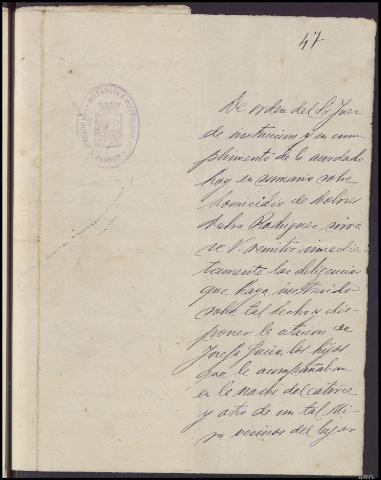 47
De orden del Sr Juez
de instruccion y en cum
plimiento de lo acordado
hoy en sumario sobre
homicidio de Dolores
Rodriguez, sirva
se V. remitir inmedia
tamente las diligencias
que haya instruido
sobre tal hecho y dis
poner la citacion de
Josefa los hijos
que le acompañaban
en la noche del catorce
y a otro de un tal Mi
ro vecinos del lugar